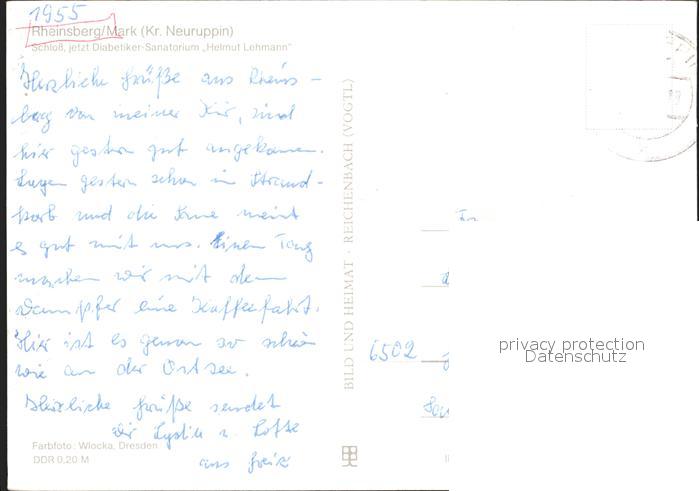 1955
Rheinsberg/Mark (Kr. Neuruppin)
Schloß, jetzt Diabetiker-Sanatorium „Helmut Lehmann"
Herzliche Grüße aus Rheins-
berg von meiner Kur, sind
hier gestern gut angekommen.
Lagen gestern schon im Strand-
korb und die Sonne meint
es gut mit uns. Einen Tag
machen wir mit dem
Dampfer eine Kaffeefahrt.
Hier ist es genau so schön
wie an der Ostsee.
Herzliche Grüße sendet
Dir Lydia u. Lotte
aus
Farbfoto: Wlocka, Dresden
DDR 0,20 M
BILD UND HEIMAT · REICHENBACH (VOGTL)
6502
privacy protection
Datenschutz